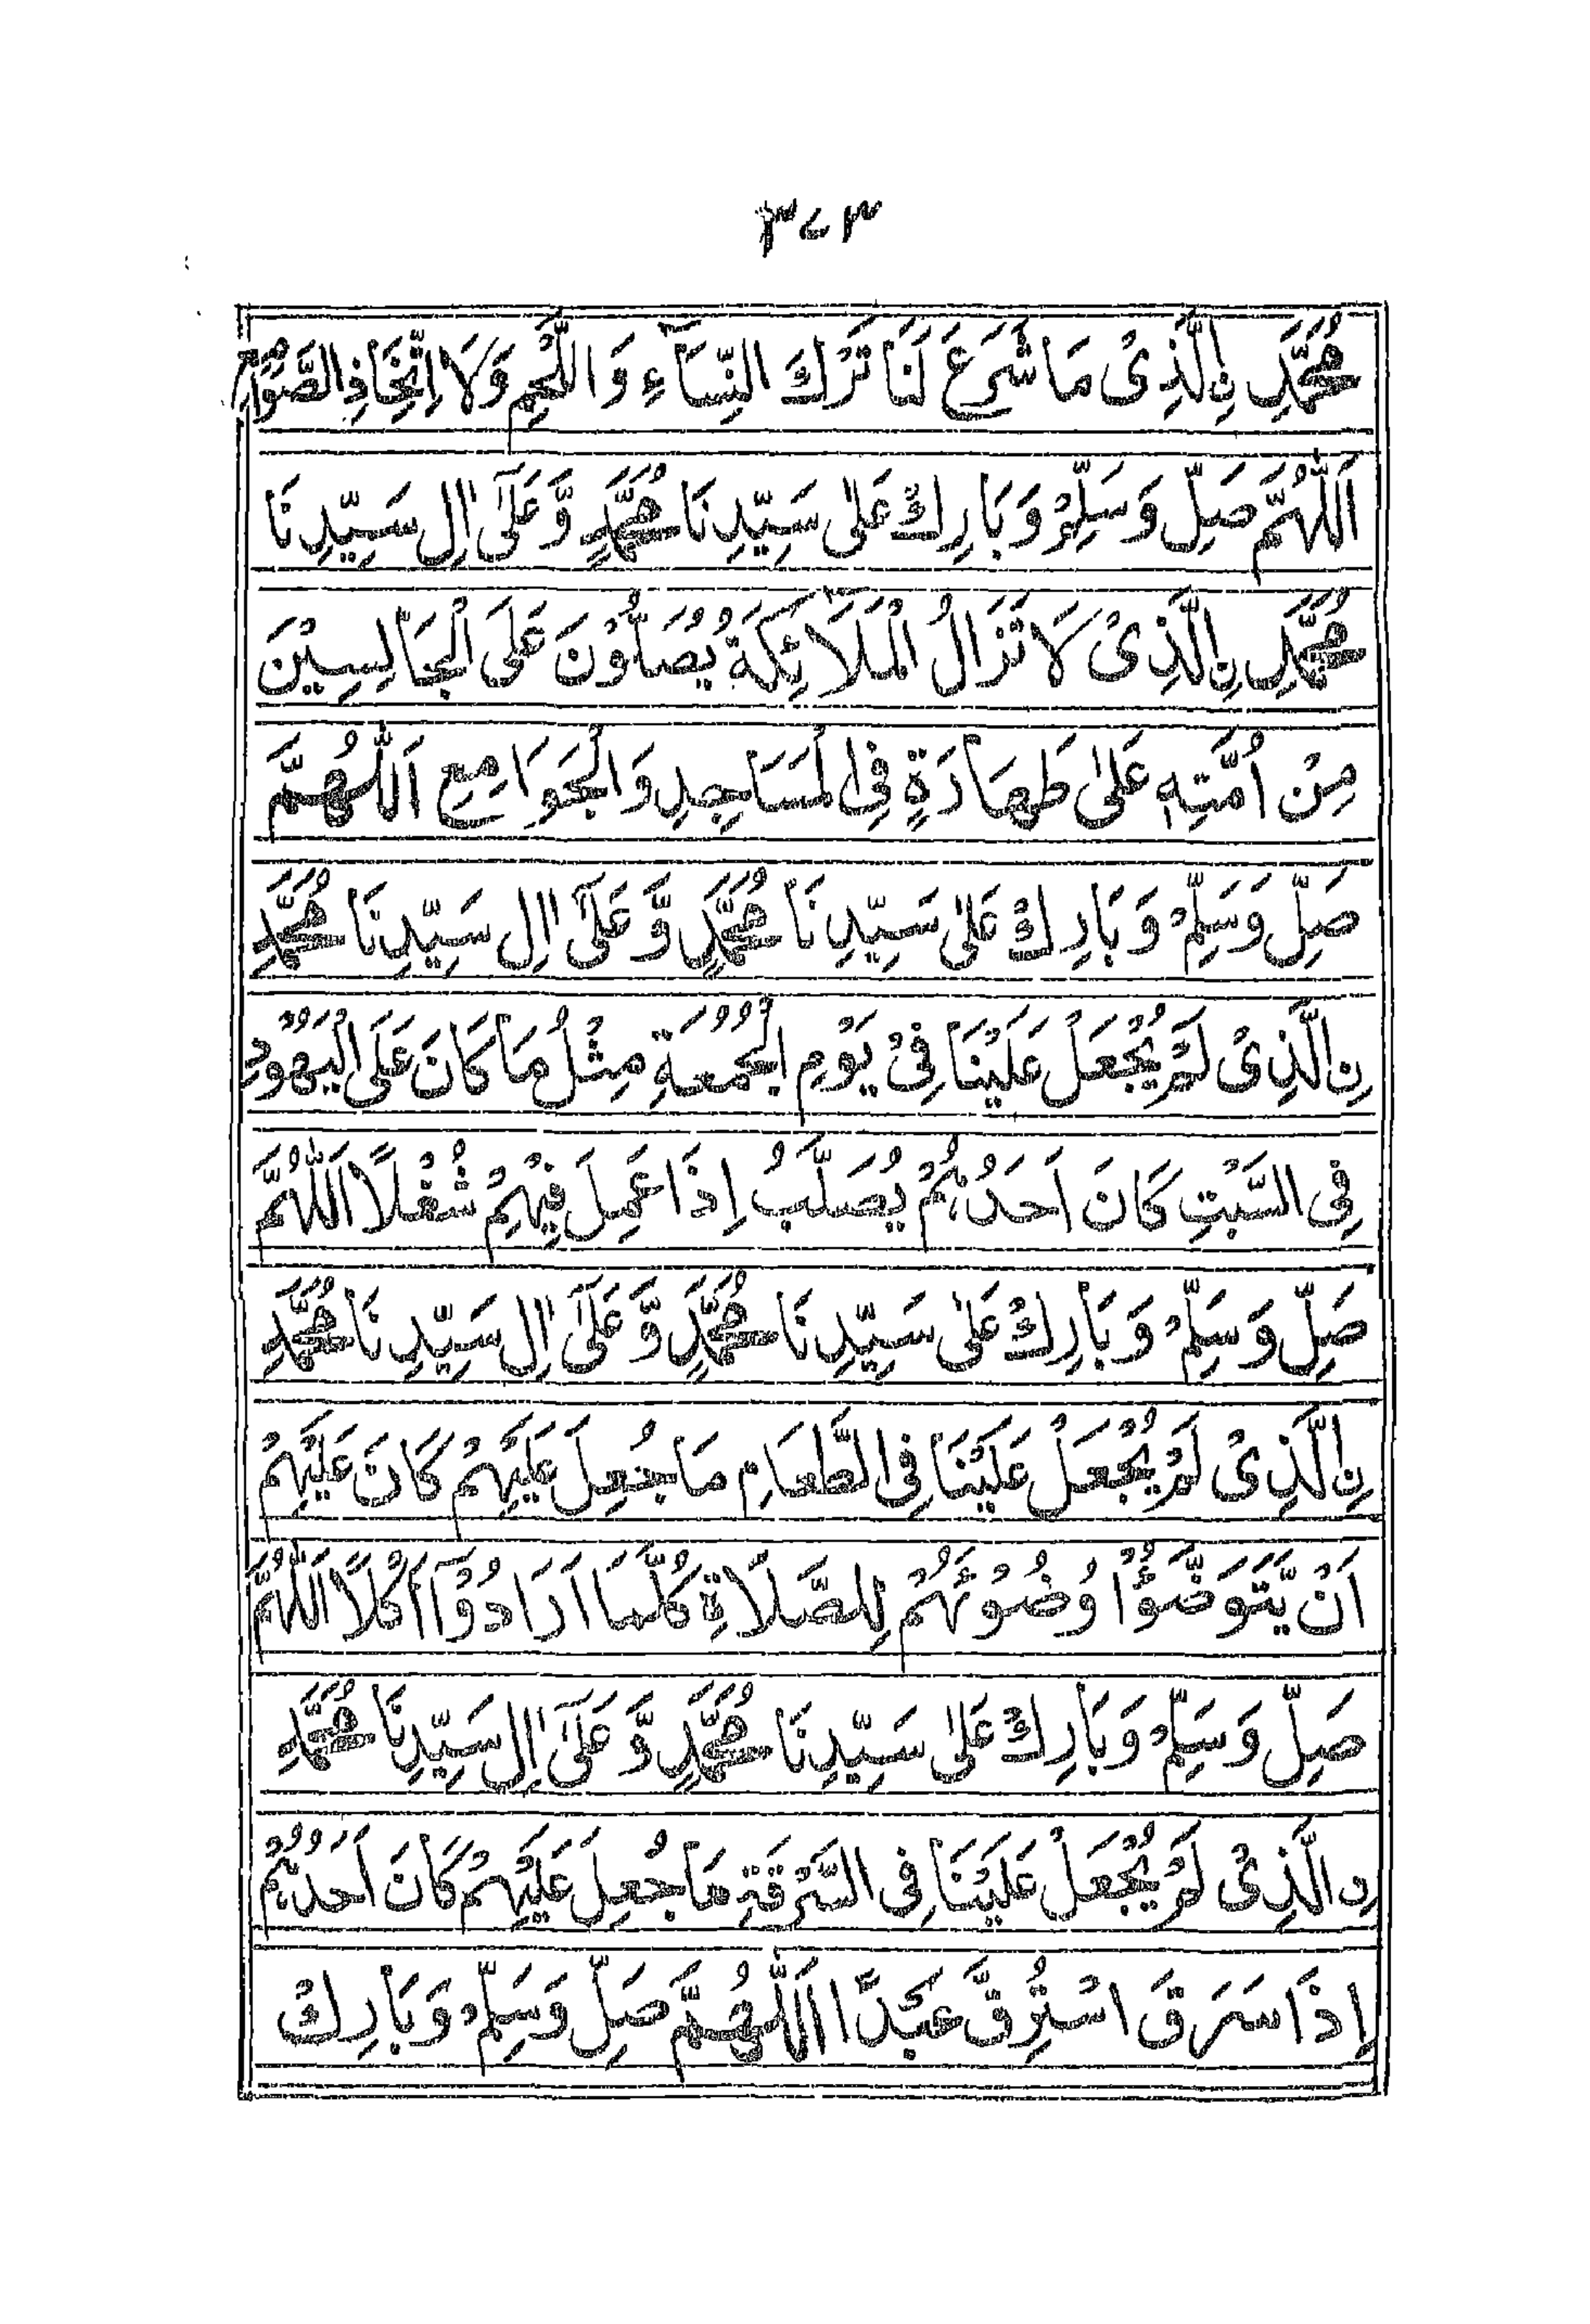 ٣٧٣
مُحَمَّدِ نِ الَّذِىْ مَا شَرَعَ لَنَا تَرْكَ النِّسَآءِ وَاللَّحْمِ وَلَا اتِّخَاذِ الصَّوَامِعِ
اَللّٰهُمَّ صَلِّ وَسَلِّمْ وَبَارِكْ عَلٰى سَيِّدِنَا مُحَمَّدٍ وَّعَلٰٓى اٰلِ سَيِّدِنَا
مُحَمَّدِ نِ الَّذِىْ لَا تَزَالُ الْمَلَآئِكَةُ يُصَلُّوْنَ عَلَى الْجَالِسِيْنَ
مِنْ اُمَّتِهٖ عَلٰى طَهَارَةٍ فِى الْمَسَاجِدِ وَالْجَوَامِعِ اَللّٰهُمَّ
صَلِّ وَسَلِّمْ وَبَارِكْ عَلٰى سَيِّدِنَا مُحَمَّدٍ وَّعَلٰٓى اٰلِ سَيِّدِنَا مُحَمَّدِ
نِ الَّذِىْ لَمْ يُجْعَلْ عَلَيْنَا فِىْ يَوْمِ الْجُمُعَةِ مِثْلُ مَا كَانَ عَلَى الْيَهُوْدِ
فِى السَّبْتِ كَانَ اَحَدُهُمْ يُصَلَّبُ اِذَا عَمِلَ فِيْهِمْ شُغْلًا اَللّٰهُمَّ
صَلِّ وَسَلِّمْ وَبَارِكْ عَلٰى سَيِّدِنَا مُحَمَّدٍ وَّعَلٰٓى اٰلِ سَيِّدِنَا مُحَمَّدِ
نِ الَّذِىْ لَمْ يُجْعَلْ عَلَيْنَا فِى الطَّعَامِ مَا جُعِلَ عَلَيْهِمْ كَانَ عَلَيْهِمْ
اَنْ يَّتَوَضَّؤُا وُضُوْئَهُمْ لِلصَّلَاةِ كُلَّمَا اَرَادُوْٓا اَكْلًا اَللّٰهُمَّ
صَلِّ وَسَلِّمْ وَبَارِكْ عَلٰى سَيِّدِنَا مُحَمَّدٍ وَّعَلٰٓى اٰلِ سَيِّدِنَا مُحَمَّدِ
نِ الَّذِىْ لَمْ يُجْعَلْ عَلَيْنَا فِى السَّرْقَةِ مَا جُعِلَ عَلَيْهِمْ كَانَ اَحَدُهُمْ
اِذَا سَرَقَ اسْتُرِقَّ عَبْدًا اَللّٰهُمَّ صَلِّ وَسَلِّمْ وَبَارِكْ